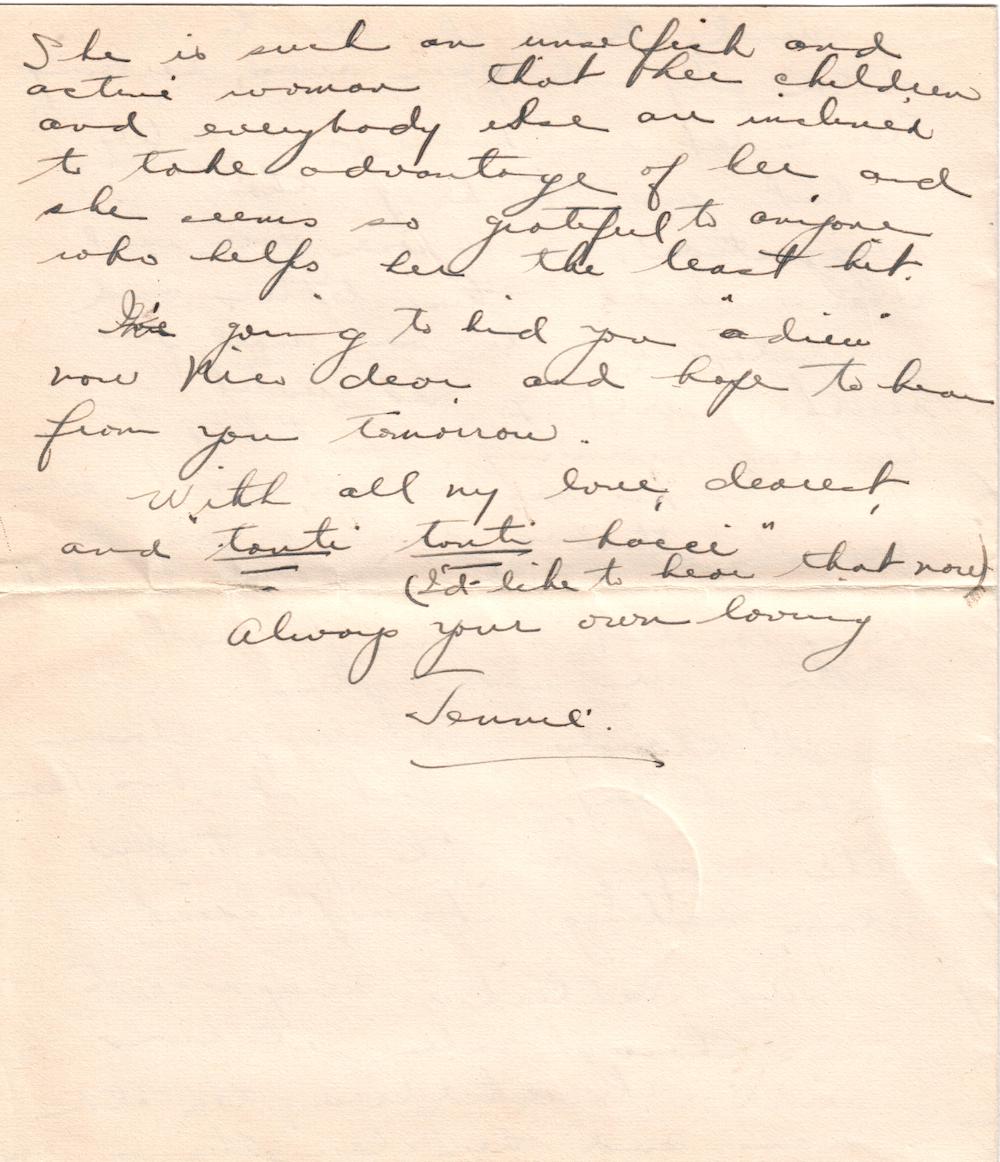 She is such an unselfish and
active woman that her children
and everybody else are inclined
to take advantage of her and
she seems so grateful to anyone
who helps her the least bit.
I'm going to bid you "adieu"
now Nico dear and hope to hear
from you tomorrow.
With all my love, dearest,
and "tanti tanti bacci"
(I'd like to hear that now)
Always your own loving
Jennie.